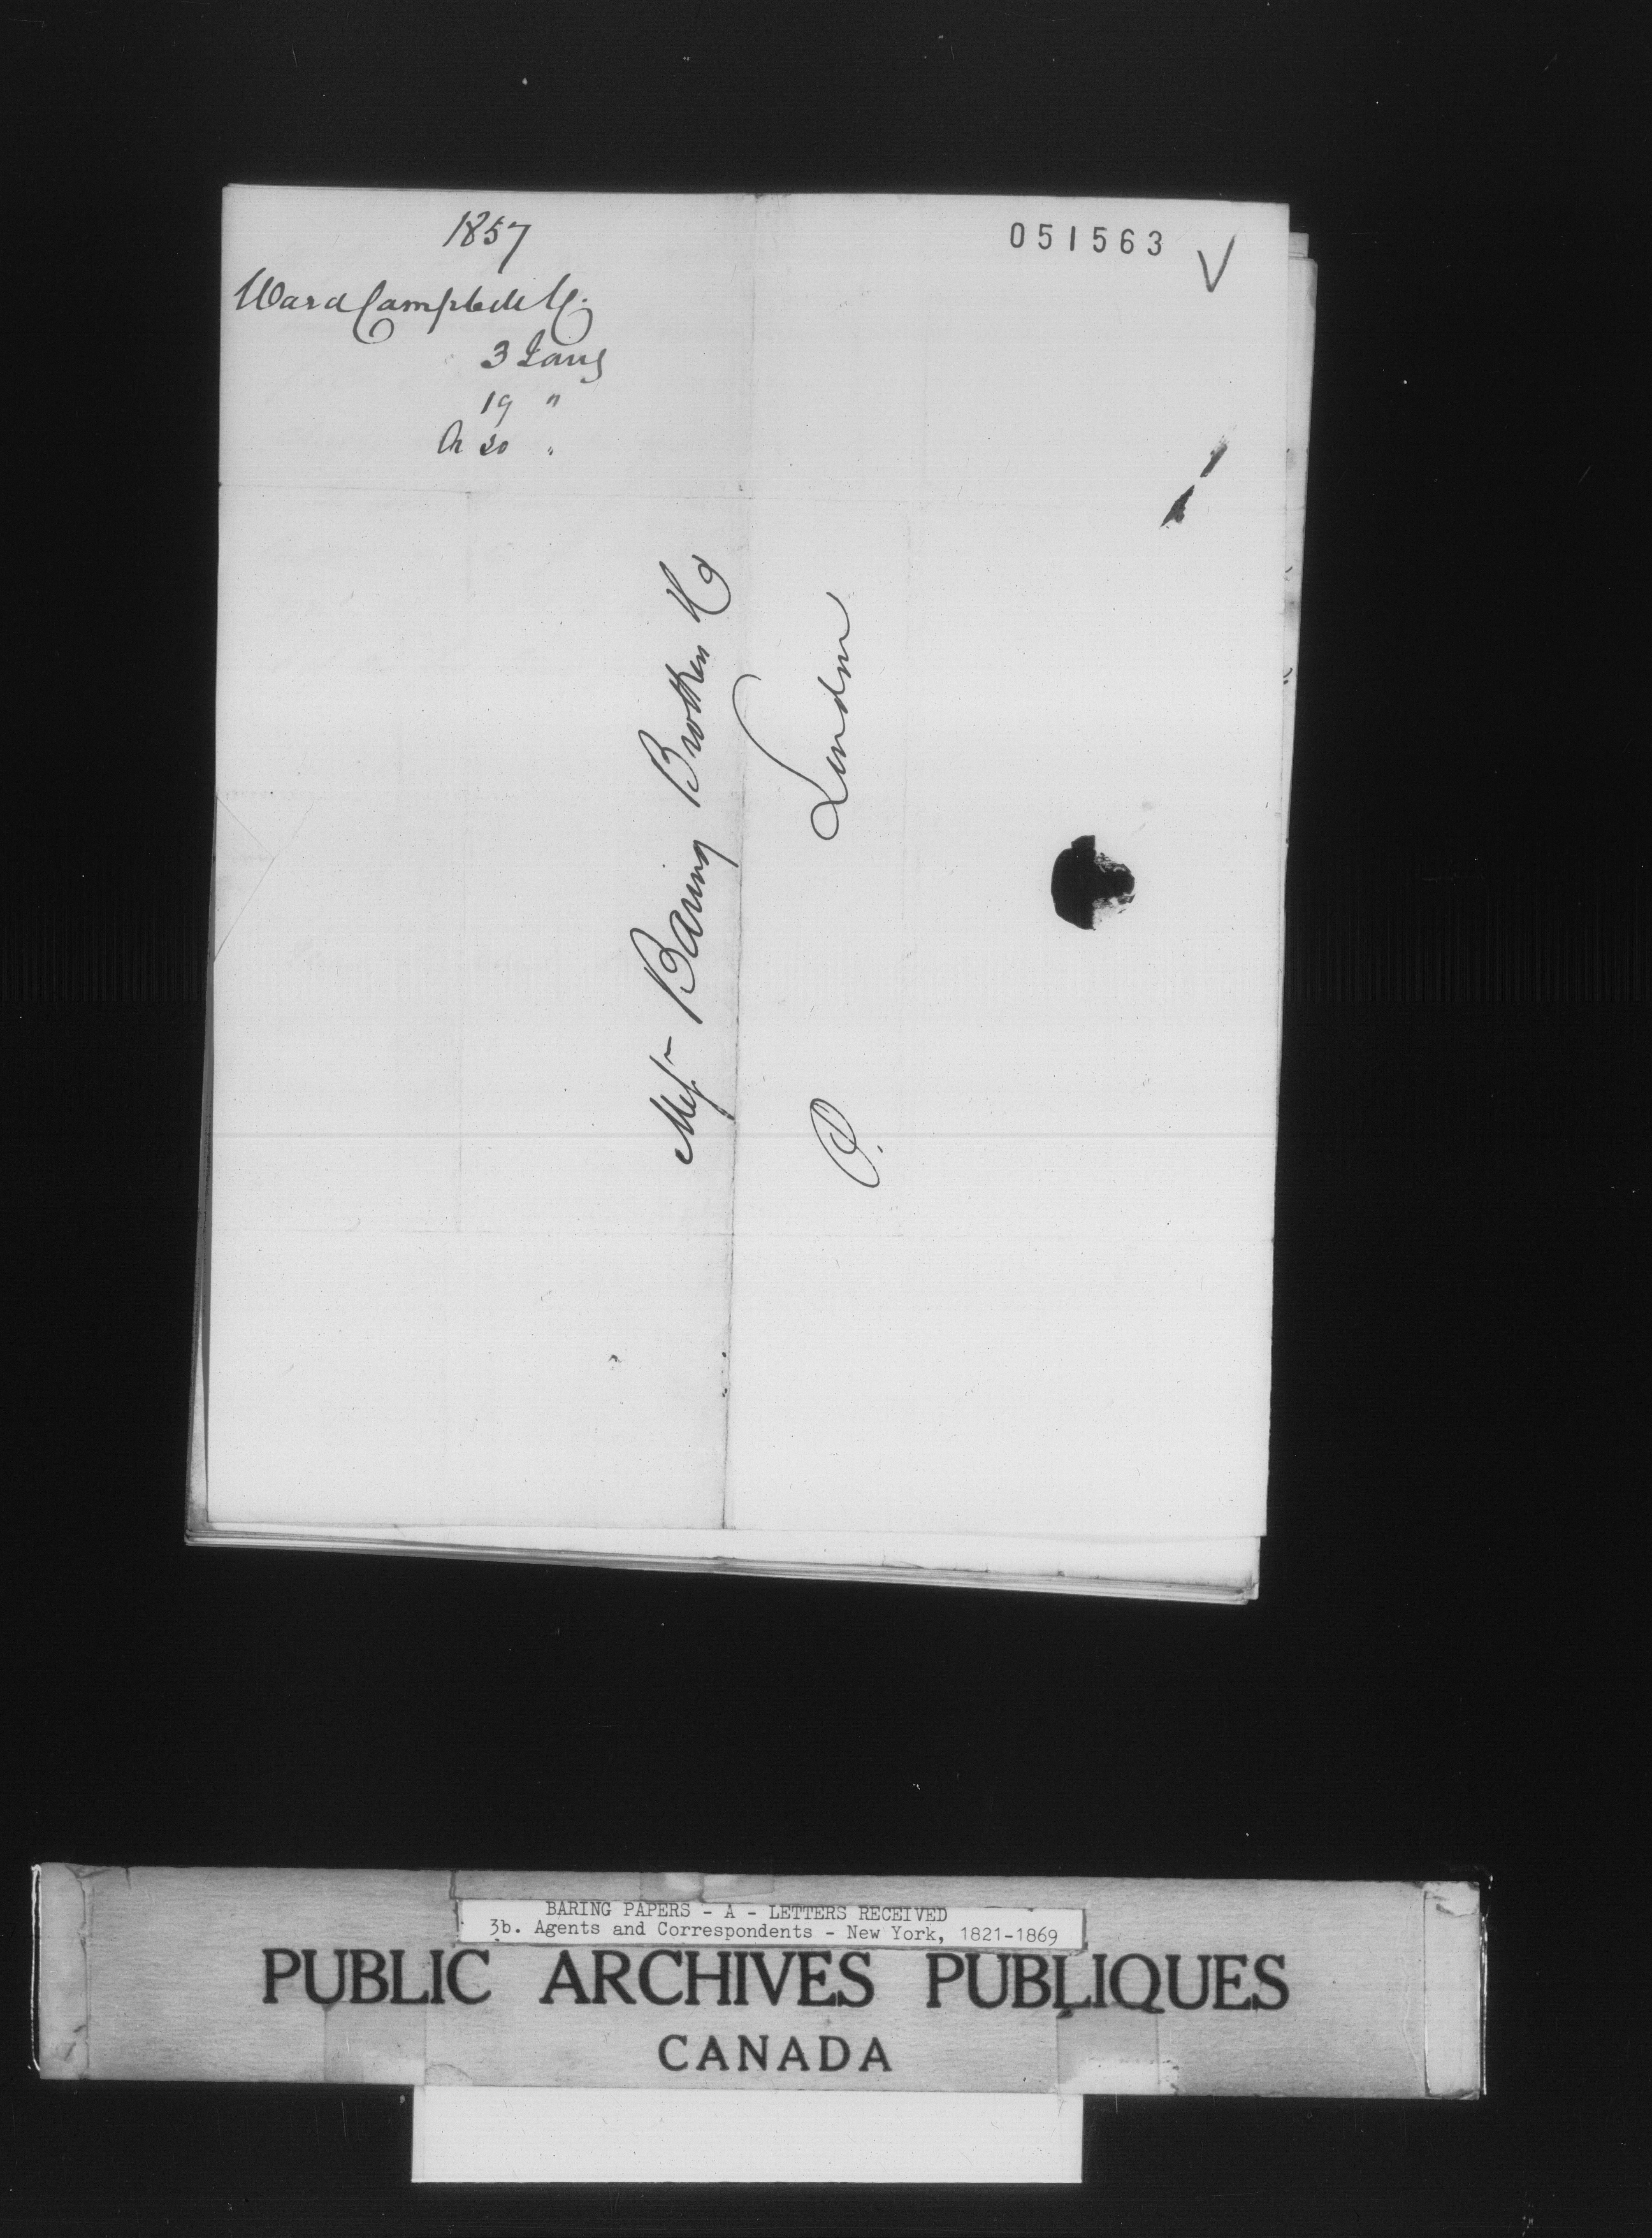 1857
051563
Ward Campbell & Co
3 Jany
19 "
A 20 "
Messrs Baring Brothers & Co
London
P.
BARING PAPERS - A - LETTERS RECEIVED
3b. Agents and Correspondents - New York, 1821-1869
PUBLIC ARCHIVES PUBLIQUES
CANADA